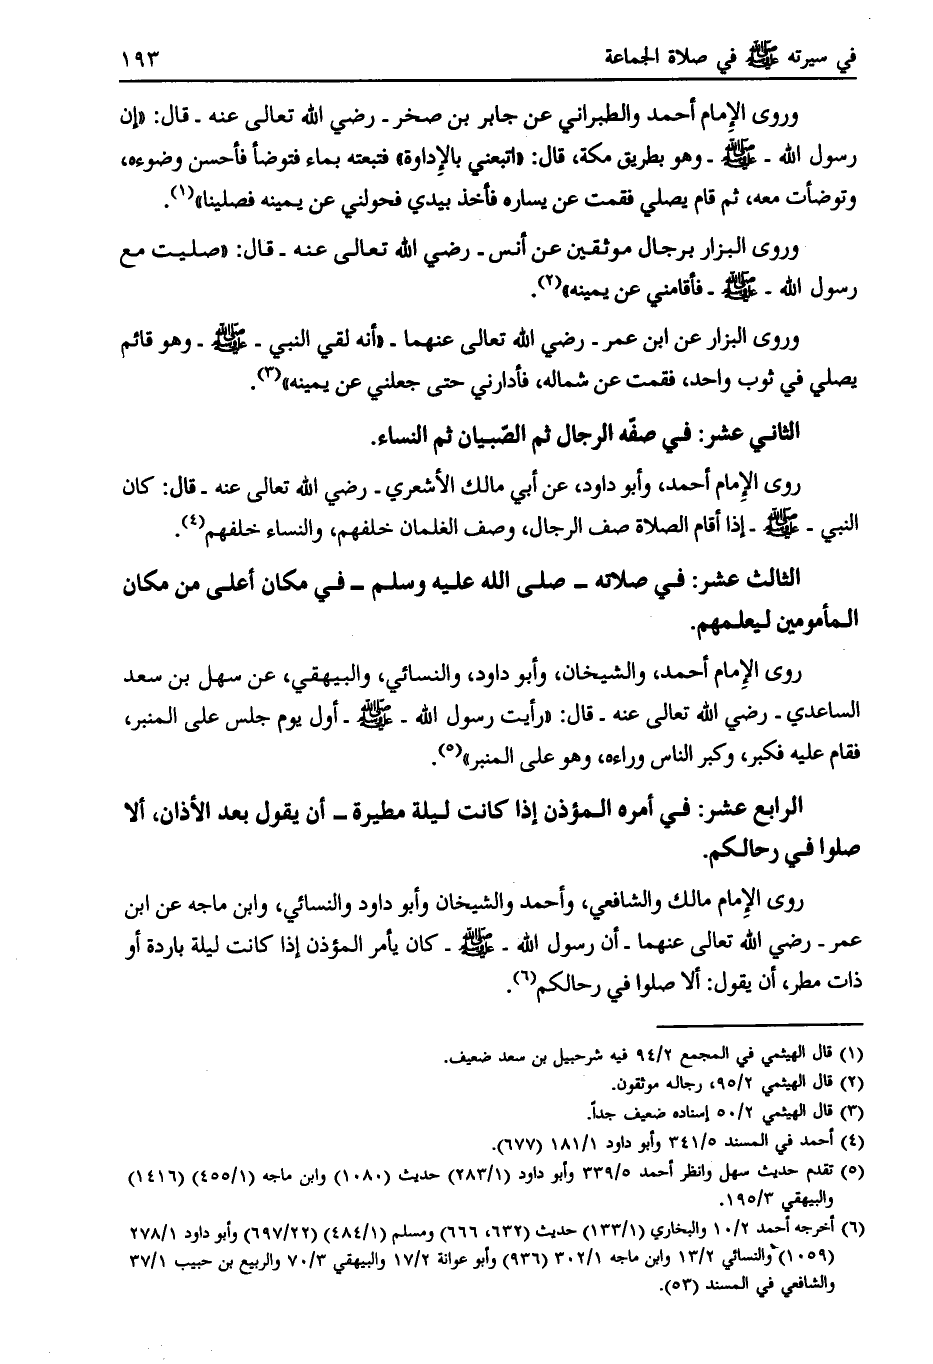 في سيرته ﷺ في صلاة الجماعة ١٩٣
وروى الإمام أحمد والطبراني عن جابر بن صخر ـ رضي الله تعالى عنه ـ قال: «إن
رسول الله ـ ﷺ ـ وهو بطريق مكة، قال: «اتبعني بالإداوة» فتبعته بماء فتوضأ فأحسن وضوءه،
وتوضأت معه، ثم قام يصلي فقمت عن يساره فأخذ بيدي فحولني عن يمينه فصلينا»(١).
وروى البزار برجال موثقين عن أنس ـ رضي الله تعالى عنه ـ قال: «صليت مع
رسول الله ـ ﷺ ـ فأقامني عن يمينه»(٢).
وروى البزار عن ابن عمر ـ رضي الله تعالى عنهما ـ «أنه لقي النبي ـ ﷺ ـ وهو قائم
يصلي في ثوب واحد، فقمت عن شماله، فأدارني حتى جعلني عن يمينه»(٣).
الثاني عشر: في صفّه الرجال ثم الصّبيان ثم النساء.
روى الإمام أحمد، وأبو داود، عن أبي مالك الأشعري ـ رضي الله تعالى عنه ـ قال: كان
النبي ـ ﷺ ـ إذا أقام الصلاة صف الرجال، وصف الغلمان خلفهم، والنساء خلفهم(٤).
الثالث عشر: في صلاته ـ صلى الله عليه وسلم ـ في مكان أعلى من مكان
المأمومين ليعلمهم.
روى الإمام أحمد، والشيخان، وأبو داود، والنسائي، والبيهقي، عن سهل بن سعد
الساعدي ـ رضي الله تعالى عنه ـ قال: «رأيت رسول الله ـ ﷺ ـ أول يوم جلس على المنبر،
فقام عليه فكبر، وكبر الناس وراءه، وهو على المنبر»(٥).
الرابع عشر: في أمره المؤذن إذا كانت ليلة مطيرة ـ أن يقول بعد الأذان، ألا
صلوا في رحالكم.
روى الإمام مالك والشافعي، وأحمد والشيخان وأبو داود والنسائي، وابن ماجه عن ابن
عمر ـ رضي الله تعالى عنهما ـ أن رسول الله ـ ﷺ ـ كان يأمر المؤذن إذا كانت ليلة باردة أو
ذات مطر، أن يقول: ألا صلوا في رحالكم(٦).
(١) قال الهيثمي في المجمع ٩٤/٢ فيه شرحبيل بن سعد ضعيف.
(٢) قال الهيثمي ٩٥/٢، رجاله موثقون.
(٣) قال الهيثمي ٥٠/٢ إسناده ضعيف جداً.
(٤) أحمد في المسند ٣٤١/٥ وأبو داود ١٨١/١ (٦٧٧).
(٥) تقدم حديث سهل وانظر أحمد ٣٣٩/٥ وأبو داود (٢٨٣/١) حديث (١٠٨٠) وابن ماجه (٤٥٥/١) (١٤١٦)
والبيهقي ١٩٥/٣.
(٦) أخرجه أحمد ١٠/٢ والبخاري (١٣٣/١) حديث (٦٣٢، ٦٦٦) ومسلم (٤٨٤/١) (٦٩٧/٢٢) وأبو داود ٢٧٨/١
(١٠٥٩) والنسائي ١٣/٢ وابن ماجه ٣٠٢/١ (٩٣٦) وأبو عوانة ١٧/٢ والبيهقي ٧٠/٣ والربيع بن حبيب ٣٧/١
والشافعي في المسند (٥٣).